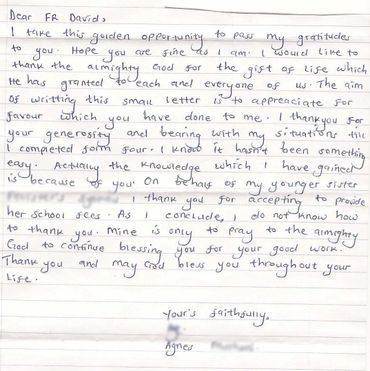 Dear FR David,
I take this golden opportunity to pass my gratitudes
to you. Hope you are fine as I am. I would like to
thank the almighty God for the gift of life which
He has granted to each and everyone of us. The aim
of writting this small letter is to appreaciate for
favour which you have done to me. I thankyou for
your generosity and bearing with my situations till
I completed form four. I know it hasn't been something
easy. Actually the knowledge which I have gained
is because of you. On behalf of my younger sister
I thank you for accepting to provide
her school fees. As I conclude, I do not know how
to thank you. Mine is only to pray to the almighty
God to continue blessing you for your good work.
Thank you and may God bless you throughout your
Life.
Your's faithfully,
Agnes